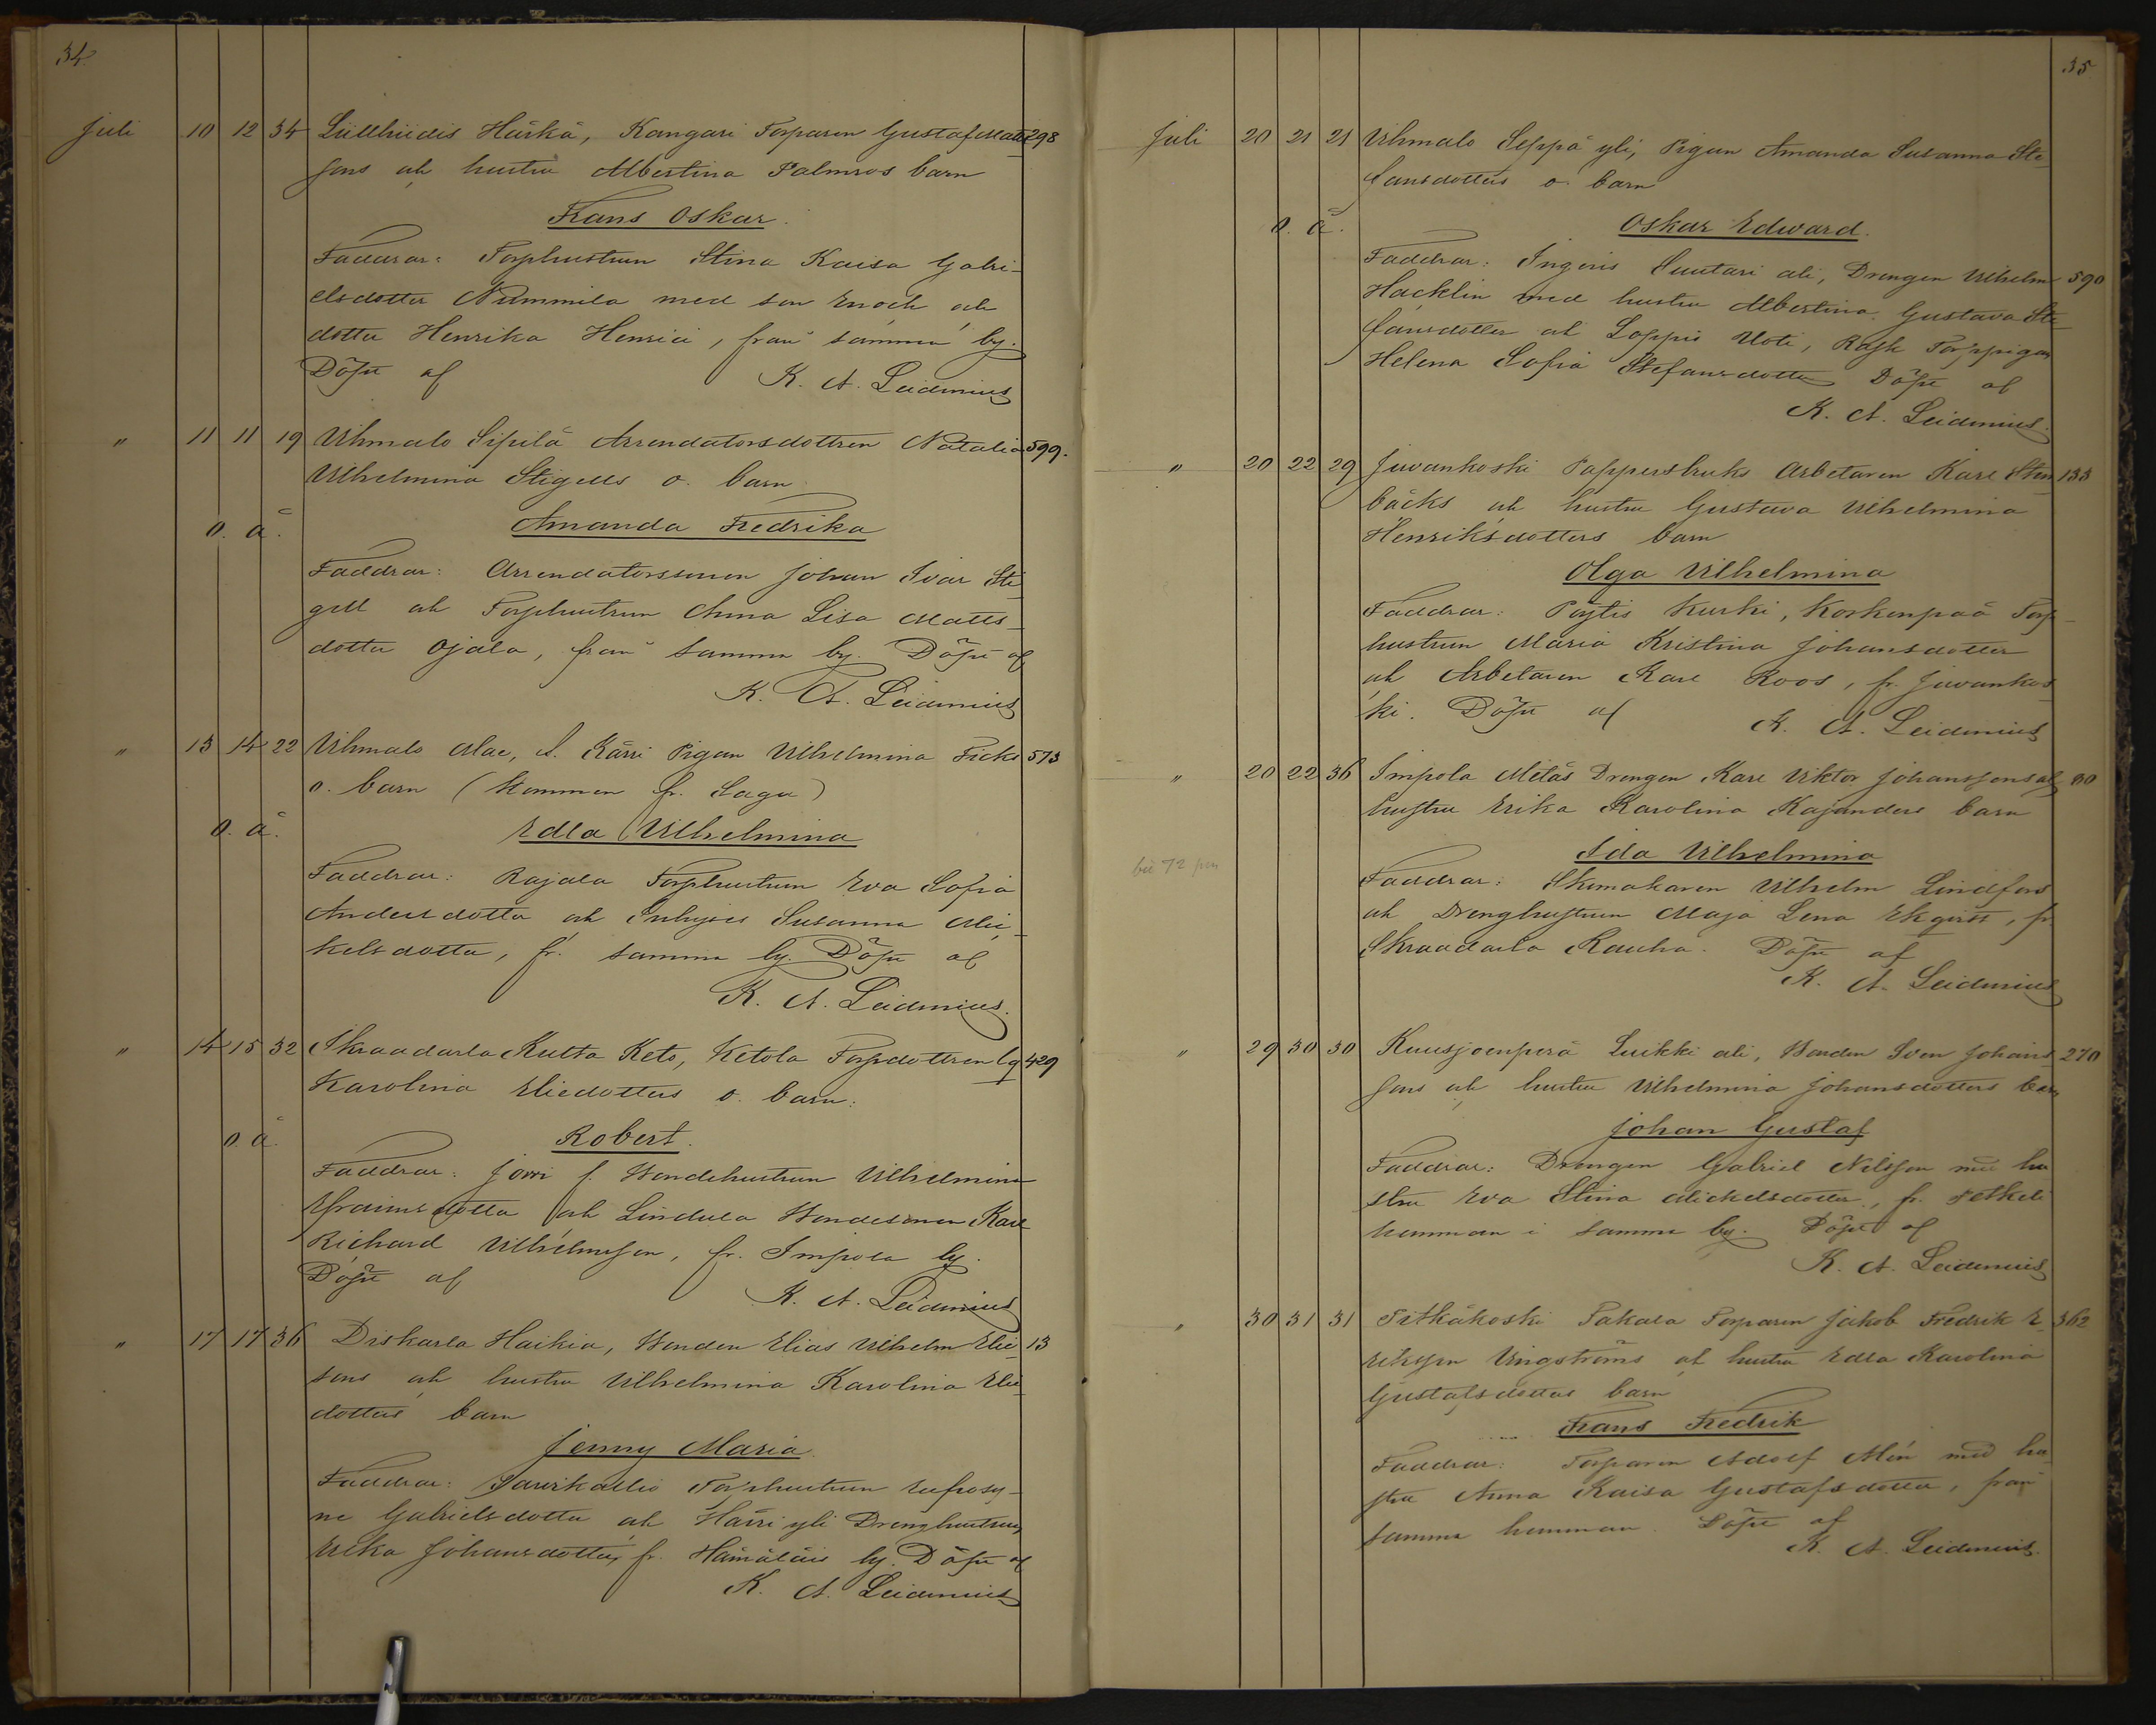 34.
Juli 10 12 34 Lüllhiidis Härkä, Kangari Torparen Gustaf Matts 298
sons och hustru Albertina Palmros barn
Frans Oskar.
Faddrar: Torphustrun Stina Kaisa Gabri-
elsdotter Nummila med son Enoch och
dotter Henrika Henrici, från samma by.
Döpt af K. A. Leidenius
" 11 11 19 Uhmalo Sipilä Arrendatorsdottren Natalia 599.
Vilhelmina Stigells o. barn
o. ä. Amanda Fredrika
Faddrar: Arrendatorssonen Johan Ivar Sti-
gell och Torphustrun Anna Lisa Matts-
dotter Ojala, från samma by. Döpt af
K. A. Leidenius
" 13 14 22 Uhmalo Alae, A. Kärri Pigan Vilhelmina Ficks 573
o. barn (kommen fr. Sagu)
o. ä. Edla Vilhelmina
Faddrar: Rajala Torphustrun Eva Sofia
Andersdotter och Inhyses Susanna Mi-
kelsdotter, fr. samma by. Döpt af
K. A. Leidenius.
" 14 15 32 Skraadarla Kutta Keto, Ketola Torpdottren 429
Karolina Eliedotters o. barn:
o ä. Robert.
Faddrar: Jovri f. Bondehustrun Vilhelmina
Efraimsdotter och Lindula Bondesonen Karl
Richard Vilhelmsson, fr. Impola by.
Döpt af K. A. Leidenius
" 17 17 36 Diskarla Haikia, Bonden Elias Vilhelm Elie- 13
sons och hustru Vilhelmina Karolina Elie-
dotters barn
Jenny Maria.
Faddrar: Saurikallio Torphustrun Eufrosy-
ne Gabrielsdotter och Härri yli Drenghustrun
Erika Johansdotter, fr. Hämäläis by. Döpt af
K. A. Leidenius
35
Juli 20 21 21 Uhmalo Seppä yli, Pigan Amanda Susanna Ste-
fansdotters o. barn
o. ä. Oskar Edward.
Faddrar: Ingeris Suutari ali, Drengen Vilhelm 590
Hacklin med hustru Albertina Gustava Ste-
fansdotter och Loppis Uoti, Torppigan
Helena Sofia Stefansdotter Döpt af
K. A. Leidenius.
" 20 22 29 Juvankoski Pappersbruks Arbetaren Karl Sten- 133
bäcks och hustru Gustava Vilhelmina
Henriksdotters barn
Olga Vilhelmina
Faddrar: Pöytis Kurki, Korkenpää Torp-
hustrun Maria Kristina Johansdotter
och Arbetaren Karl Roos, fr. Juvankos-
ki. Döpt af K. A. Leidenius
" 20 22 36 Impola Metäs Drengen Karl Viktor Johanssons och 80
hustru Erika Karolina Kajanders barn
Ida Vilhelmina
Faddrar: Skomakaren Vilhelm Lindfors
och Drenghustrun Maja Lena Ekqvist, fr.
Skraadarla Rauha. Döpt af
K. A. Leidenius
" 29 30 30 Kuusjoenperä Luikki ali, Bonden Sven Johans- 270
sons och hustru Vilhelmina Johansdotters barn
Johan Gustaf
Faddrar: Drengen Gabriel Nilsson med hu-
stru Eva Stina Mickelsdotter, fr.
hemman i samma by. Döpt af
K. A. Leidenius
" 30 31 31 Pitkäkoski Pakala Torparen Jakob Fredrik E- 362
riksson Ringströms och hustru Edla Karolina
Gustafsdotters barn
Frans Fredrik
Faddrar: Torparen Adolf Alén med hu-
stru Anna Kaisa Gustafsdotter, från
samma hemman. Döpt af
K. A. Leidenius.